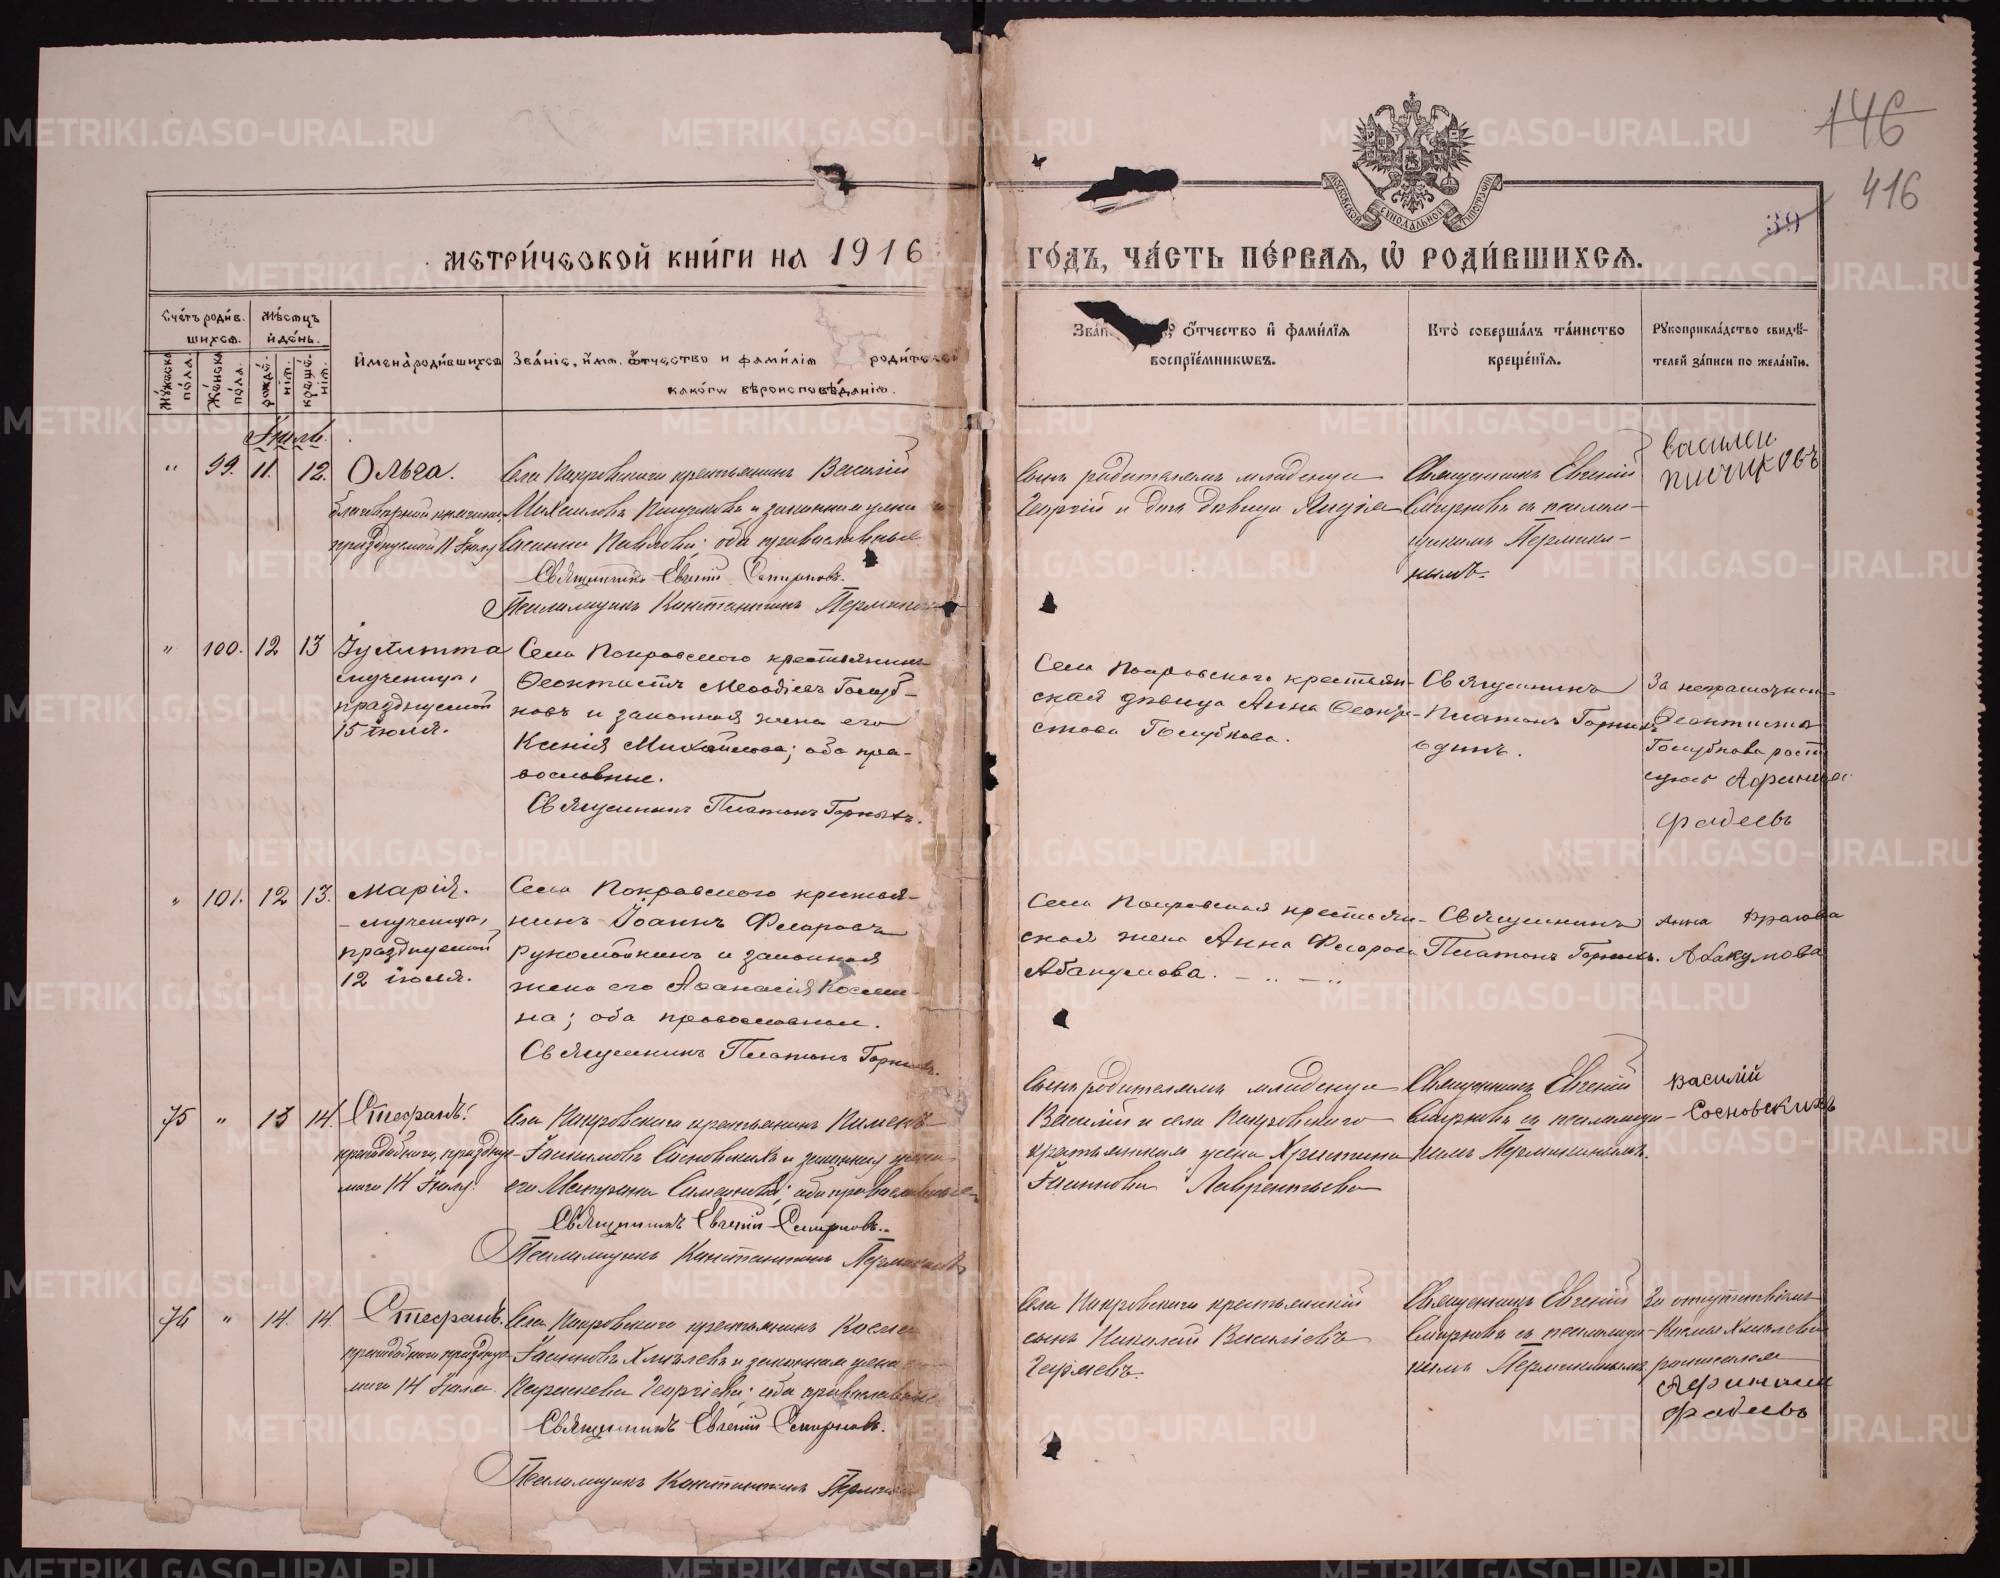 146
416
39
МОСКОВСКОЙ СѴНОДАЛЬНОЙ ТИПОГРАФІИ
МЕТРИ́ЧЕСКОЙ КНИ́ГИ НА 1916
ГО́ДЪ, ЧА́СТЬ ПЕ́РВАЯ, Ѡ҆ РОДИ́ВШИХСЯ.
Сче́тъ роди́в-
шихсѧ.
Мѣ́сѧцъ
и҆ де́нь.
Му́жеска
по́ла.
Же́нска
по́ла.
рожде́-
нїѧ.
креще́-
нїѧ.
И҆мена̀ роди́вшихсѧ
Зва́нїе, и҆́мѧ, ѻ҆́тчество и фами́лїѧ роди́телей
како́гѡ вѣроисповѣ́данїѧ.
ѻ҆́тчество и҆ фами́лїѧ
воспрїе́мникѡвъ.
Кто̀ соверша́лъ та́инство
креще́нїѧ.
Рукоприкла́дство свидѣ́-
телей за́писи по жела́нїю.
Іюль.
" 99. 11. 12. Ольга.
благоверной княгини,
празднуемой 11 Іюля
Села Покровскаго крестьянинъ Василій
Михаиловъ Пичуковъ и законная жена
Павлова; оба православные.
Священникъ Евгеній Смирновъ.
Псаломщикъ Константинъ Перминовъ
Сынъ родителямъ младенца
Георгій и дочь девица Лидія
Священникъ Евгеній
Смирновъ съ псалом-
щикомъ Пермини-
нымъ.
Василей
" 100. 12 13 Іулитта
мученица,
празднуемой
15 іюля.
Села Покровского крестьянинъ
Феоктистъ Мефодіевъ Голуб-
ковъ и законная жена его
Ксенія Михайлова; оба пра-
вославные.
Священникъ Платонъ Горныхъ.
Села Покровского крестьян-
ская девица Анна Феокти-
стова Голубкова.
Священникъ
Платонъ Горныхъ
одинъ.
За неграмотнаго
Феоктиста
Голубкова
Фадеевъ
" 101. 12 13. Марія.
мученица,
празднуемой
12 іюля.
Села Покровского крестья-
нинъ Іоаннъ Флоровъ
Рукомойкинъ и законная
жена его Афанасія Косми-
на; оба православные.
Священникъ Платонъ Горныхъ.
Села Покровского крестьян-
ская жена Анна Флорова
Абакумова.
Священникъ
Платонъ Горныхъ.
Анна Фролова
Абакумова
75 " 13 14. Стефанъ.
преподобнаго, праздну-
емаго 14 Іюля.
Села Покровского крестьянинъ Пименъ
Іакимовъ Сосновскихъ и законная жена
его Матрона Симеонова; оба православные.
Священникъ Евгеній Смирновъ.
Псаломщикъ Константинъ Перминовъ
Сынъ родителямъ младенца
Василій и села Покровского
крестьянская жена Христина
Іоаннова Лаврентьева
Священникъ Евгеній
Смирновъ съ псаломщи-
комъ Перминовымъ.
Василій
Сосновскихъ
76 " 14. 14. Стефанъ.
преподобнаго праздну-
емаго 14 Іюля.
Села Покровского крестьянинъ Косма
Іоанновъ Хмелевъ и законная жена
Параскева Георгіева; оба православные.
Священникъ Евгеній Смирновъ.
Псаломщикъ Константинъ
Села Покровского крестьянскій
сынъ Николай Василіевъ
Священникъ Евгеній
Смирновъ съ псаломщи-
комъ Перминовымъ.
За отсутствіемъ
Космы Хмелева
росписался
Афиноген
Фадеевъ